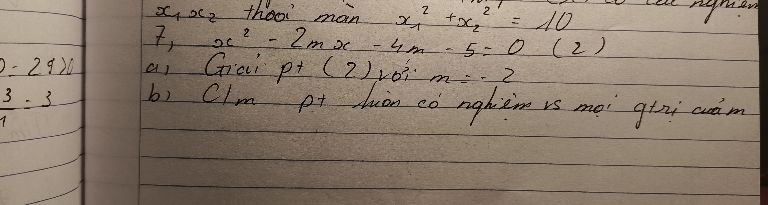 có nghiệm
x₁ x₂ thoả mãn x₁² + x₂² = 10
7, x² - 2mx - 4m - 5 = 0 (2)
a, Giải pt (2) với m = -2
b, C/m pt luôn có nghiệm vs mọi gtrị của m
3
1 = 3